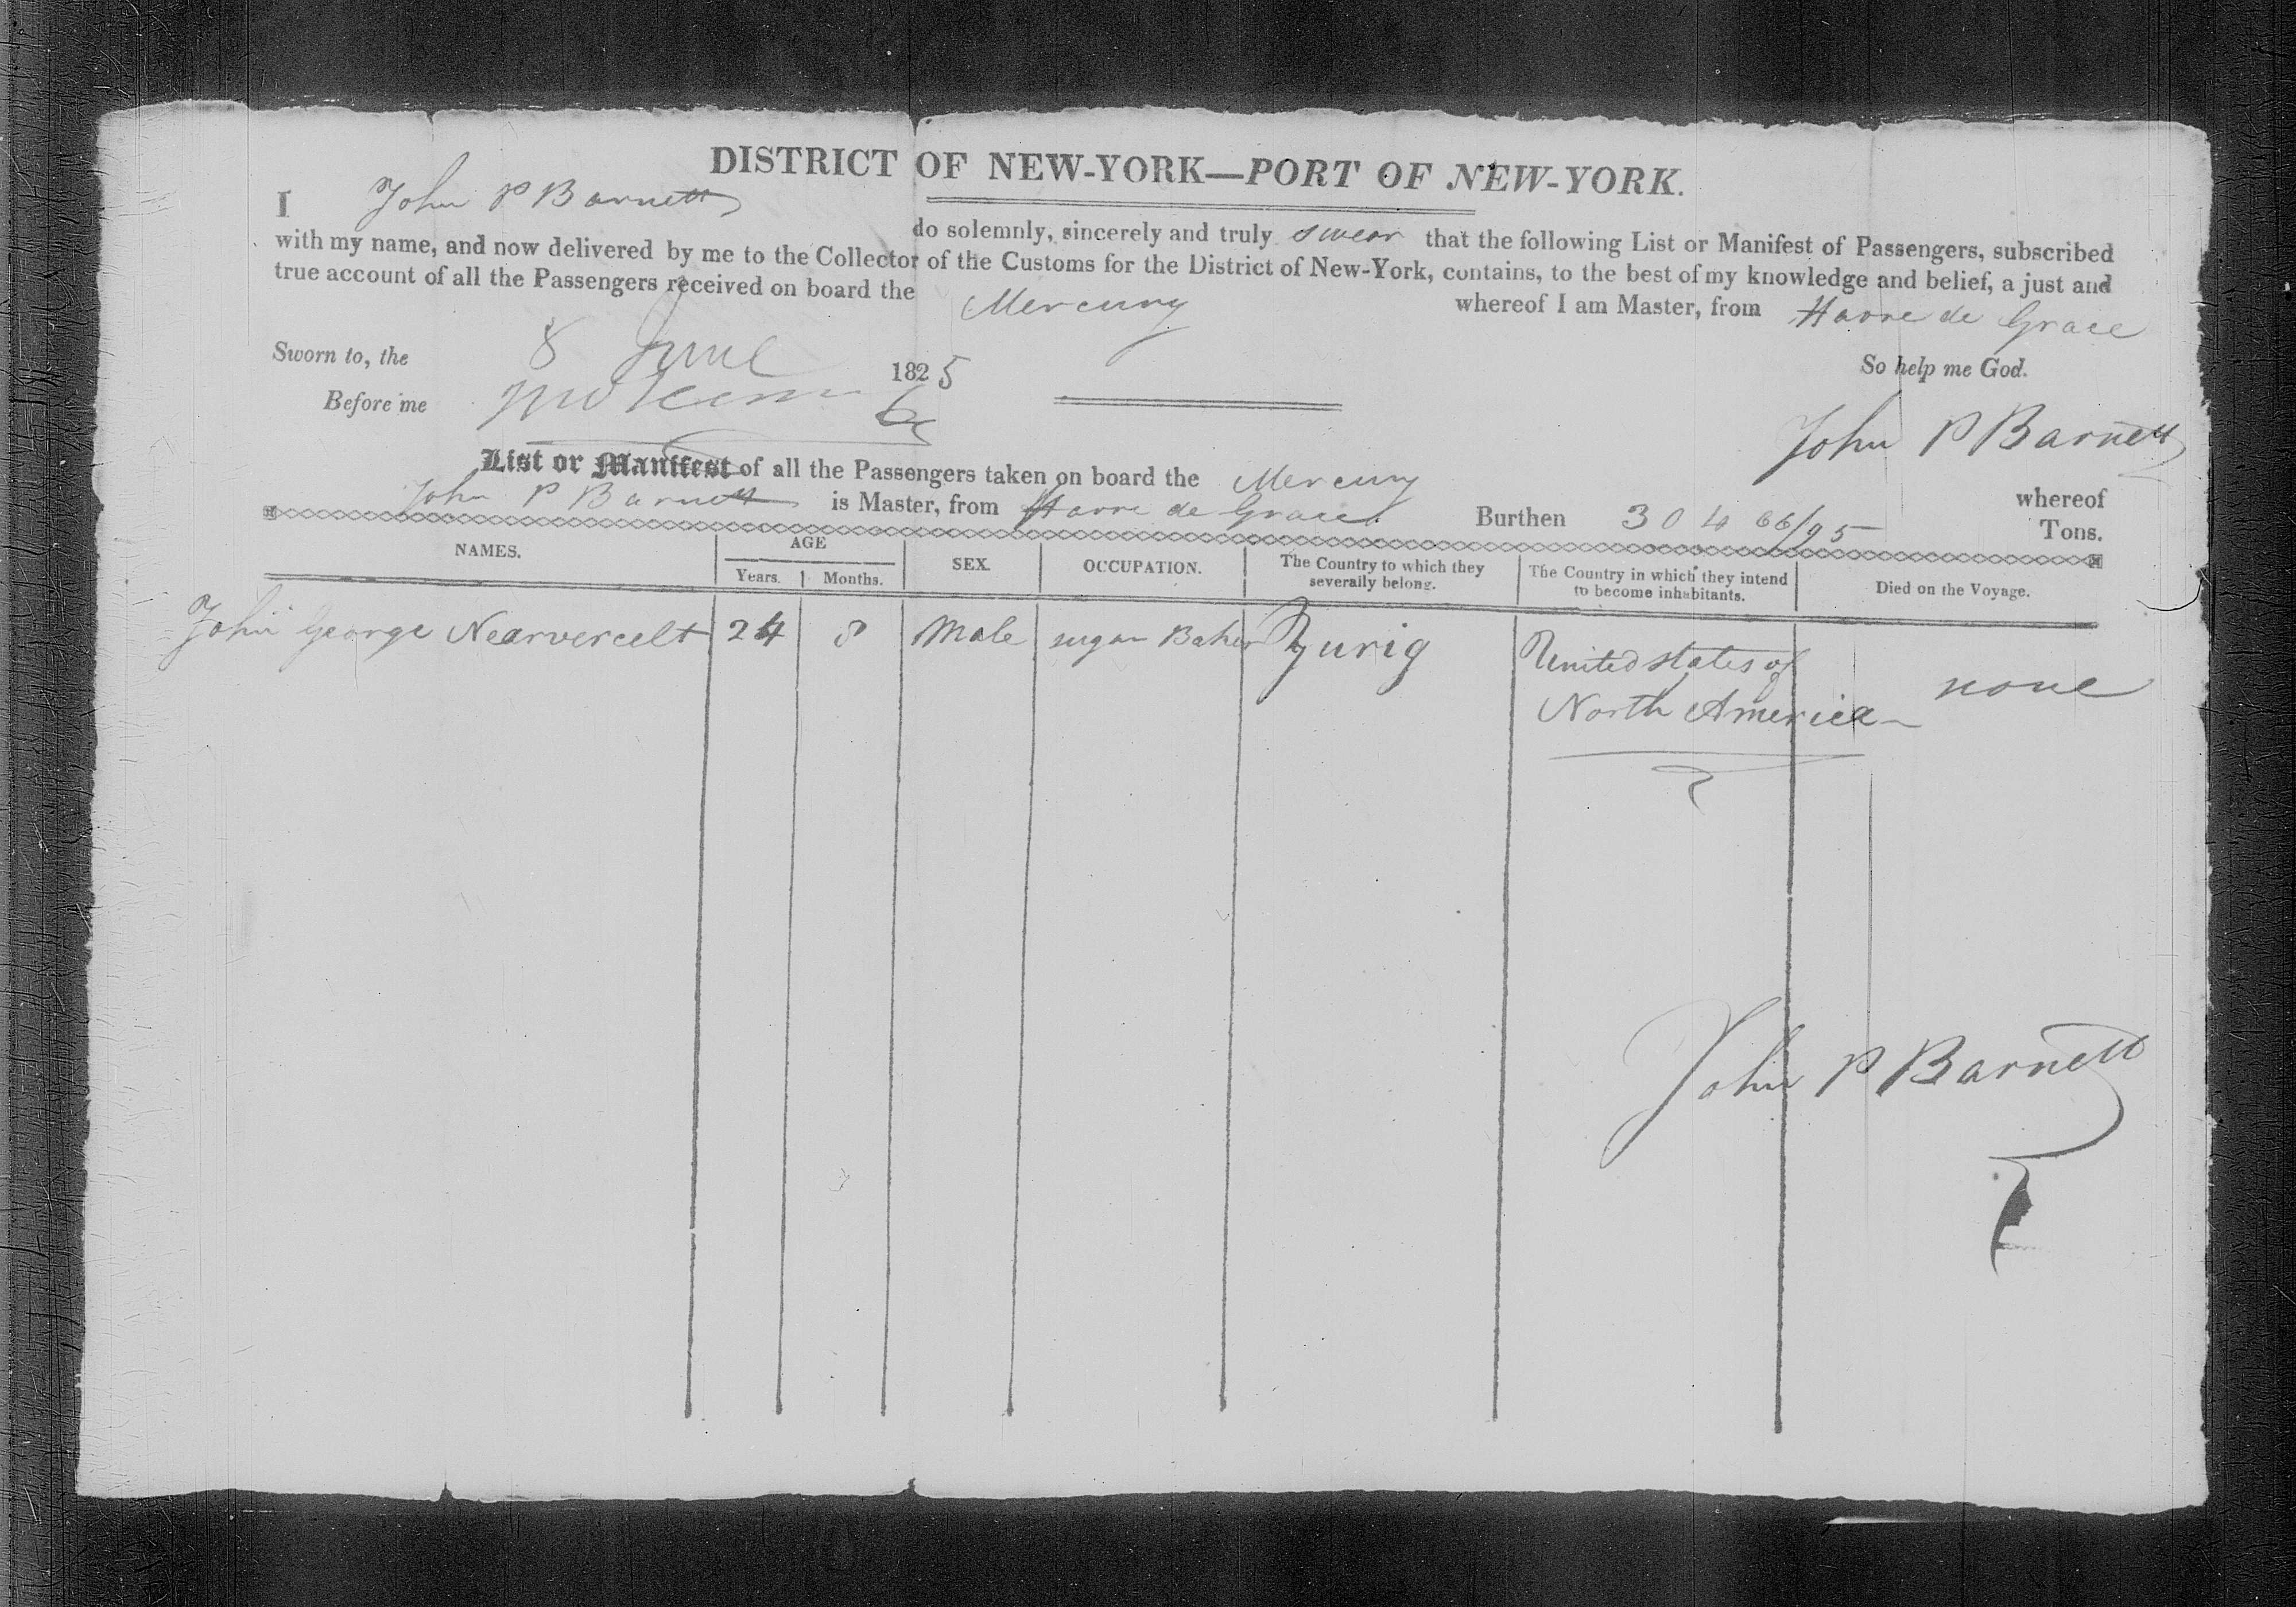 DISTRICT OF NEW-YORK—PORT OF NEW-YORK.
I John P Barnett do solemnly, sincerely and truly swear that the following List or Manifest of Passengers, subscribed
with my name, and now delivered by me to the Collector of the Customs for the District of New-York, contains, to the best of my knowledge and belief, a just and
true account of all the Passengers received on board the Mercury whereof I am Master, from Havre de Grace
So help me God.
Sworn to, the 8 June 1825
Before me
John P Barnett
List or Manifest of all the Passengers taken on board the Mercury whereof
John P Barnett is Master, from Havre de Grace Burthen 304 66/95 Tons.
NAMES. AGE SEX. OCCUPATION. The Country to which they severally belong. The Country in which they intend to become inhabitants. Died on the Voyage.
Years. Months.
John George Nearvercelt 24 8 Male sugar Baker Zurig United states of
North America none
John P Barnett